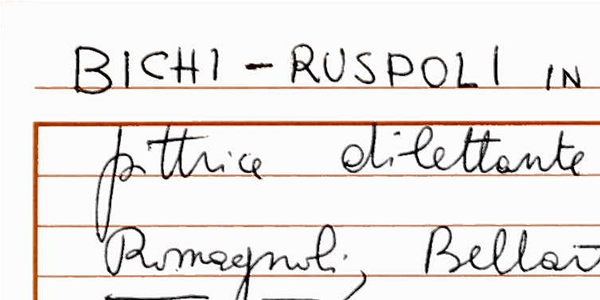 BICHI - RUSPOLI IN
pittrice dilettante
Romagnoli,